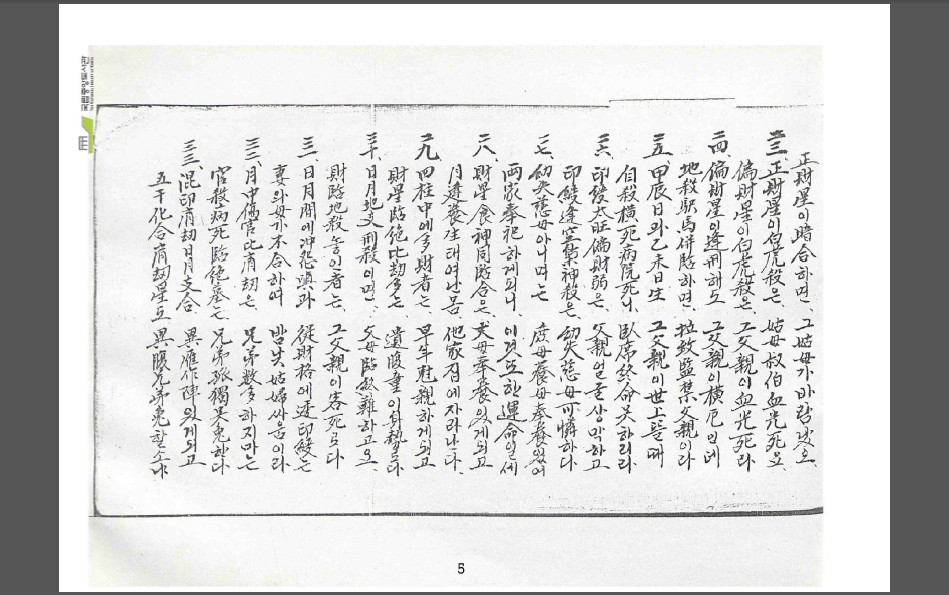 正財星이 暗合하면 그 姑母가 바람낫소
二三、正財星이 白虎殺은 姑母叔伯血光死요
偏財星이 白虎殺은 그 父親이 血光死라
二四、偏財星이 逢刑해도 그 父親이 橫厄인데
地殺馹馬併臨하면 拉致監禁父親이라
二五、甲辰日과 乙未日生 그 父親이 世上뜰때
自殺橫死病院死니 臥席終命못하리라
二六、印綬太旺偏財弱은 父親얼골삭막하고
印綬逢空梟神殺은 幼失慈母可憐하다
二七、幼失慈母아니며는 庶母養母奉養있어
兩家奉祀하게되니 이것도한 運命일세
二八、財星食神同臨合은 丈母奉養있게되고
月逢養生태여난몸 他家집에자라나다
二九、四柱中에 多財者는 早年剋親하게되고
財星臨絶比劫多는 遺腹童이身勢라
三十、日月地支刑殺이면 父母臨終難하고요
財臨地殺놓이者는 그父親이客死로다
三一、日月間에 冲怨嗔과 從財格에逢印綬는
妻와母가不合하여 밤낮姑婦싸움이라
三二、月中傷官比肩劫은 兄弟數多하지만는
官殺病死臨絶墓는 兄弟孤獨못免한다
三三、混印肩劫日月支合 異雁作陣있게되고
五干化合肩劫星도 異腹兄弟免할소냐
5